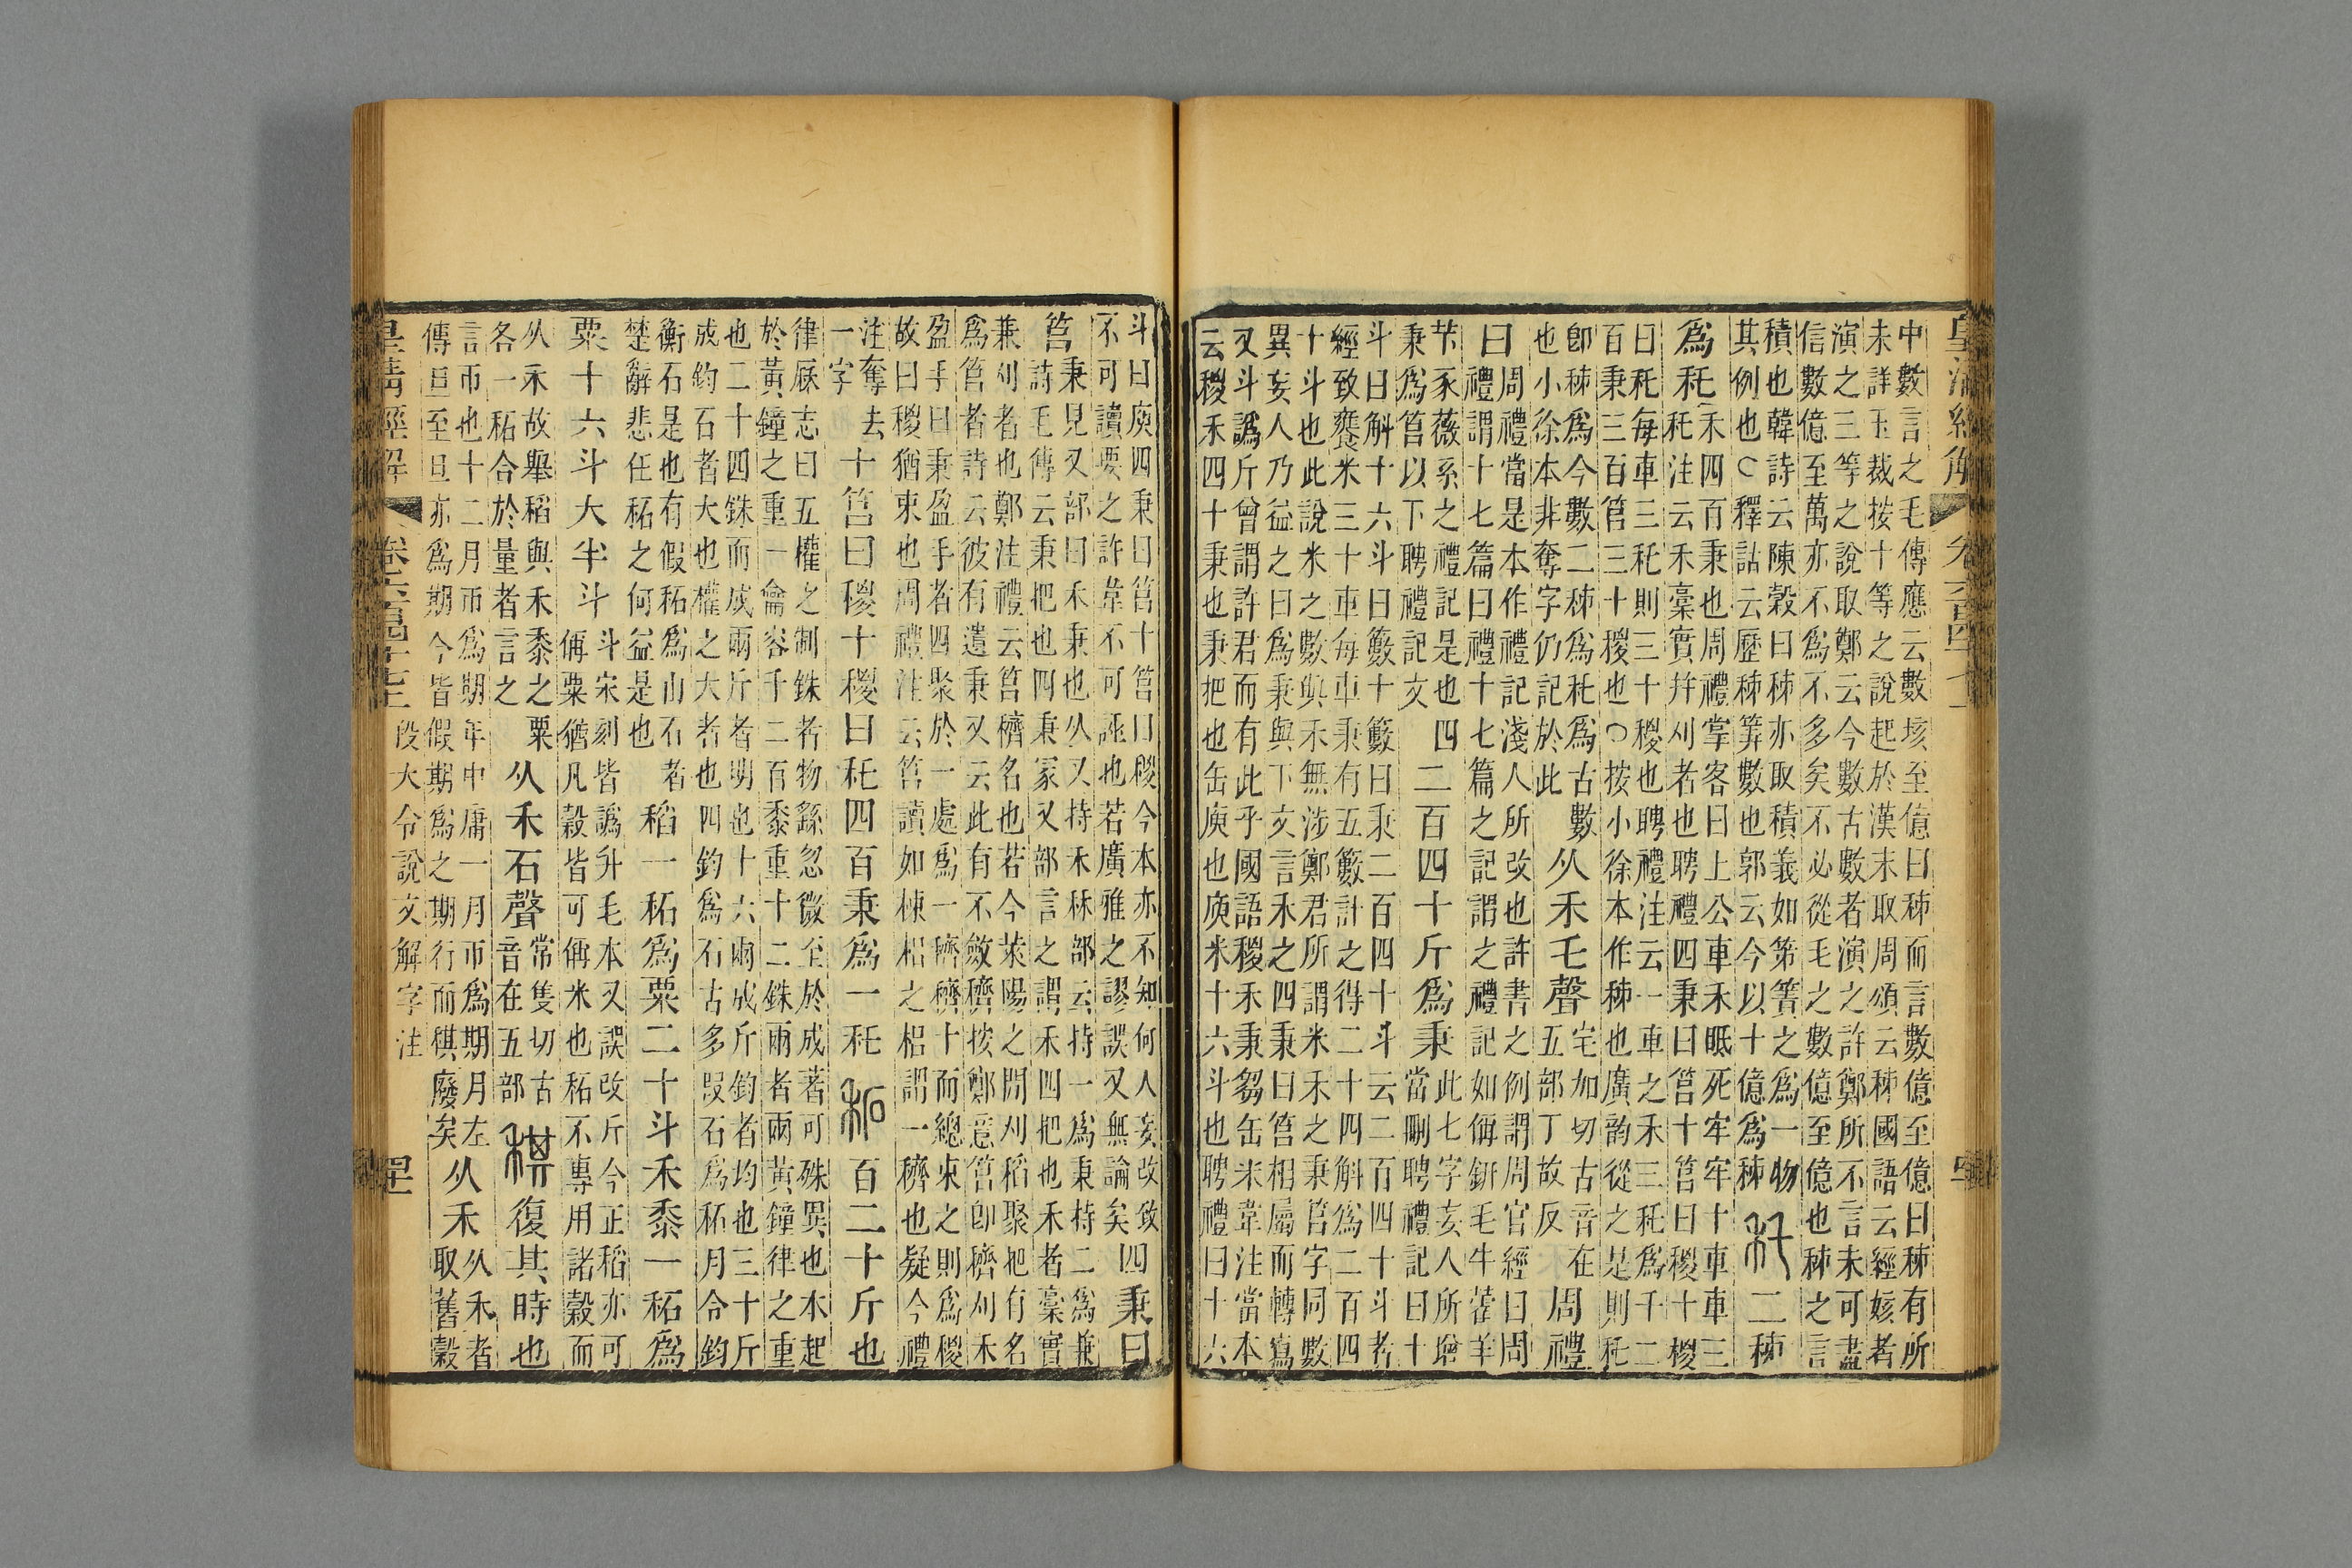 中數言之毛傳應云數垓至億曰秭而言數億至億曰秭有所
未詳玉裁按十等之說起於漢末取周頌云秭國語云經姟者
演之三等之說取鄭云今數古數者演之許鄭所不言未可盡
信數億至萬亦不爲不多矣不必從毛之數億至億也秭之言
積也韓詩云陳穀曰秭亦取積義如第簀之爲一物
其例也○釋詁云歷秭筭數也郭云今以十億爲秭
秅二秭
爲秅
禾四百秉也周禮掌客曰上公車禾眡死牢牢十車車三
秅注云禾稾實幷刈者也聘禮四秉曰筥十筥曰稯十稯
曰秅每車三秅則三十稯也聘禮注云一車之禾三秅爲千二
百秉三百筥三十稯也○按小徐本作秭也廣韵從之是則秅
卽秭爲今數二秭爲秅爲古數
也小徐本非奪字仍記於此
从禾乇聲
宅加切古音在
五部丁故反
周禮
曰
周禮當是本作禮記淺人所改也許書之例謂周官經曰周
禮謂十七篇曰禮十七篇之記謂之禮記如偁鈃毛牛藿羊
芐豕薇系之禮記是也四
秉爲筥以下聘禮記文
二百四十斤爲秉
此七字妄人所增
當刪聘禮記曰十
斗曰斛十六斗曰籔十籔曰秉二百四十斗云二百四十斗者
經致饔米三十車每車秉有五籔計之得二十四斛爲二百四
十斗也此說米之數與禾無涉鄭君所謂米禾之秉筥字同數
異妄人乃益之曰爲秉與下文言禾之四秉曰筥相屬而轉寫
又斗譌斤曾謂許君而有此乎國語稯禾秉芻缶米韋注當本
云稯禾四十秉也秉把也缶庾也庾米十六斗也聘禮曰十六
斗曰庾四秉曰筥十筥曰稯今本亦不知何人妄改致
不可讀要之許韋不可誣也若廣雅之謬誤又無論矣
四秉曰
筥
秉見又部曰禾秉也从又持禾秝部云持一爲秉持二爲兼
詩毛傳云秉把也四秉冡又部言之謂禾四把也禾者稾實
兼刈者也鄭注禮云筥穧名也若今萊陽之閒刈稻聚把有名
爲筥者詩云彼有遺秉又云此有不斂穧按鄭意筥卽穧刈禾
盈手曰秉盈手者四聚於一處爲一穧穧十而總束之則爲稯
故曰稯猶束也周禮注云筥讀如棟梠之梠謂一穧也疑今禮
注奪去
一字
十筥曰稯十稯曰秅四百秉爲一秅
䄷百二十斤也
律厤志曰五權之制銖者物繇忽微至於成著可殊異也本起
於黃鐘之重一龠容千二百黍重十二銖兩者兩黃鐘律之重
也二十四銖而成兩斤者明也十六兩成斤鈞者均也三十斤
成鈞石者大也權之大者也四鈞爲石古多叚石爲䄷月令鈞
衡石是也有假䄷爲山石者
楚辭悲任䄷之何益是也
稻一䄷爲粟二十斗禾黍一䄷爲
粟十六斗大半斗
斗宋刻皆譌升毛本又誤改斤今正稻亦可
偁粟猶凡穀皆可偁米也䄷不專用諸穀而
从禾故舉稻與禾黍之粟
各一䄷合於量者言之
从禾石聲
常隻切古
音在五部
稘復其時也
言帀也十二月帀爲期年中庸一月帀爲期月左
傳旦至旦亦爲期今皆假期爲之期行而稘廢矣
从禾
从禾者
取舊穀
皇清經解
卷六百四十七上
段大令說文解字注